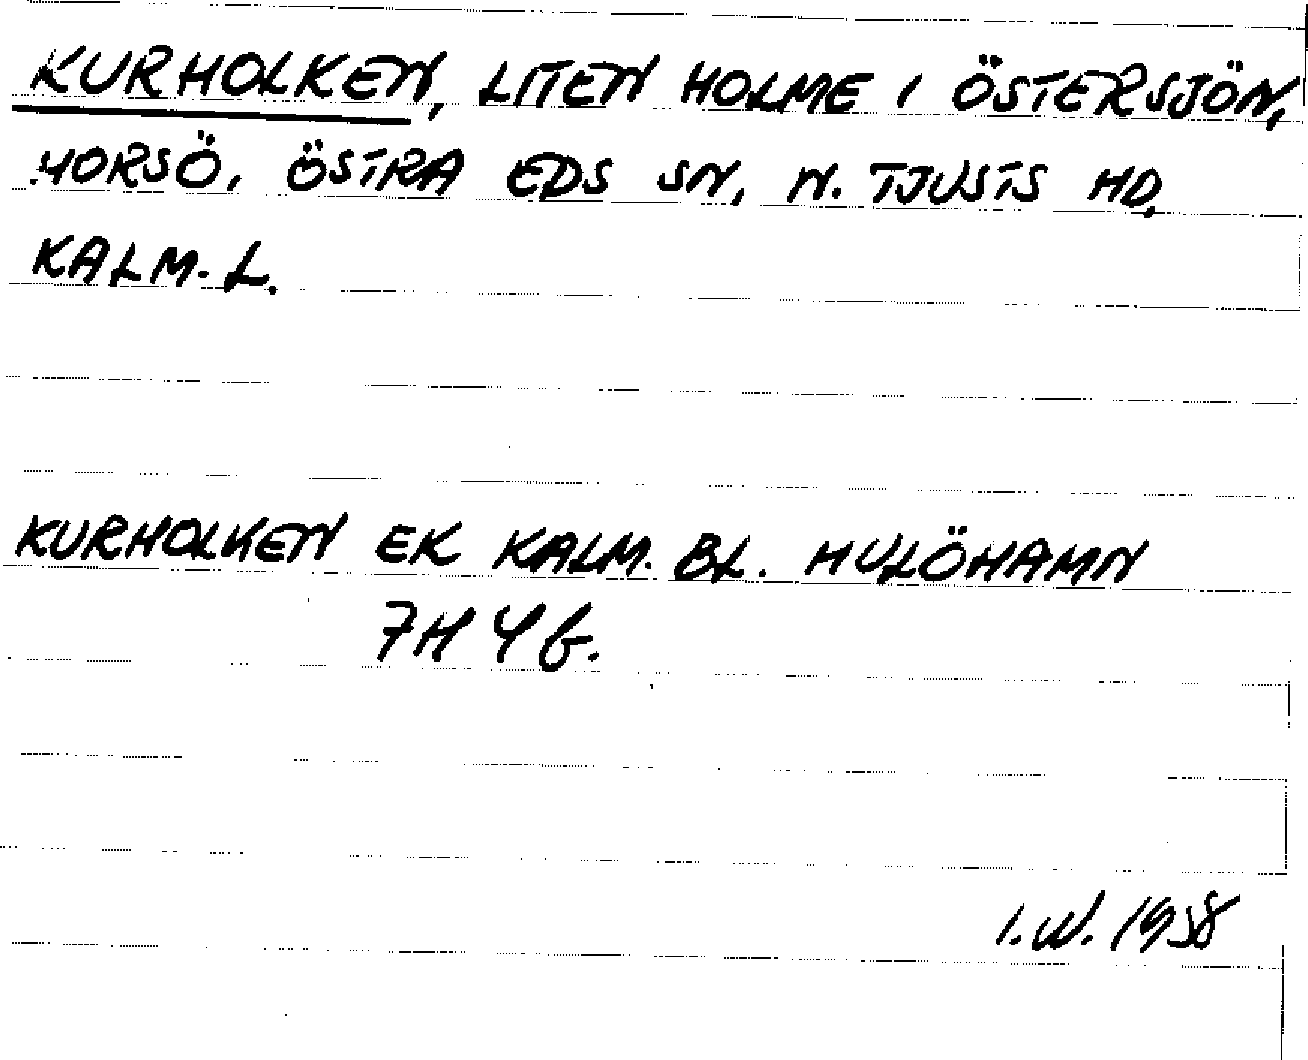 KURHOLKEN, LITEN HOLME I ÖSTERSJÖN,
HORSÖ, ÖSTRA EDS SN, N. TJUSTS HD,
KALM. L.
KURHOLKEN EK KALM. BL. HULÖHAMN
7H 4 b.
I. W. 1958